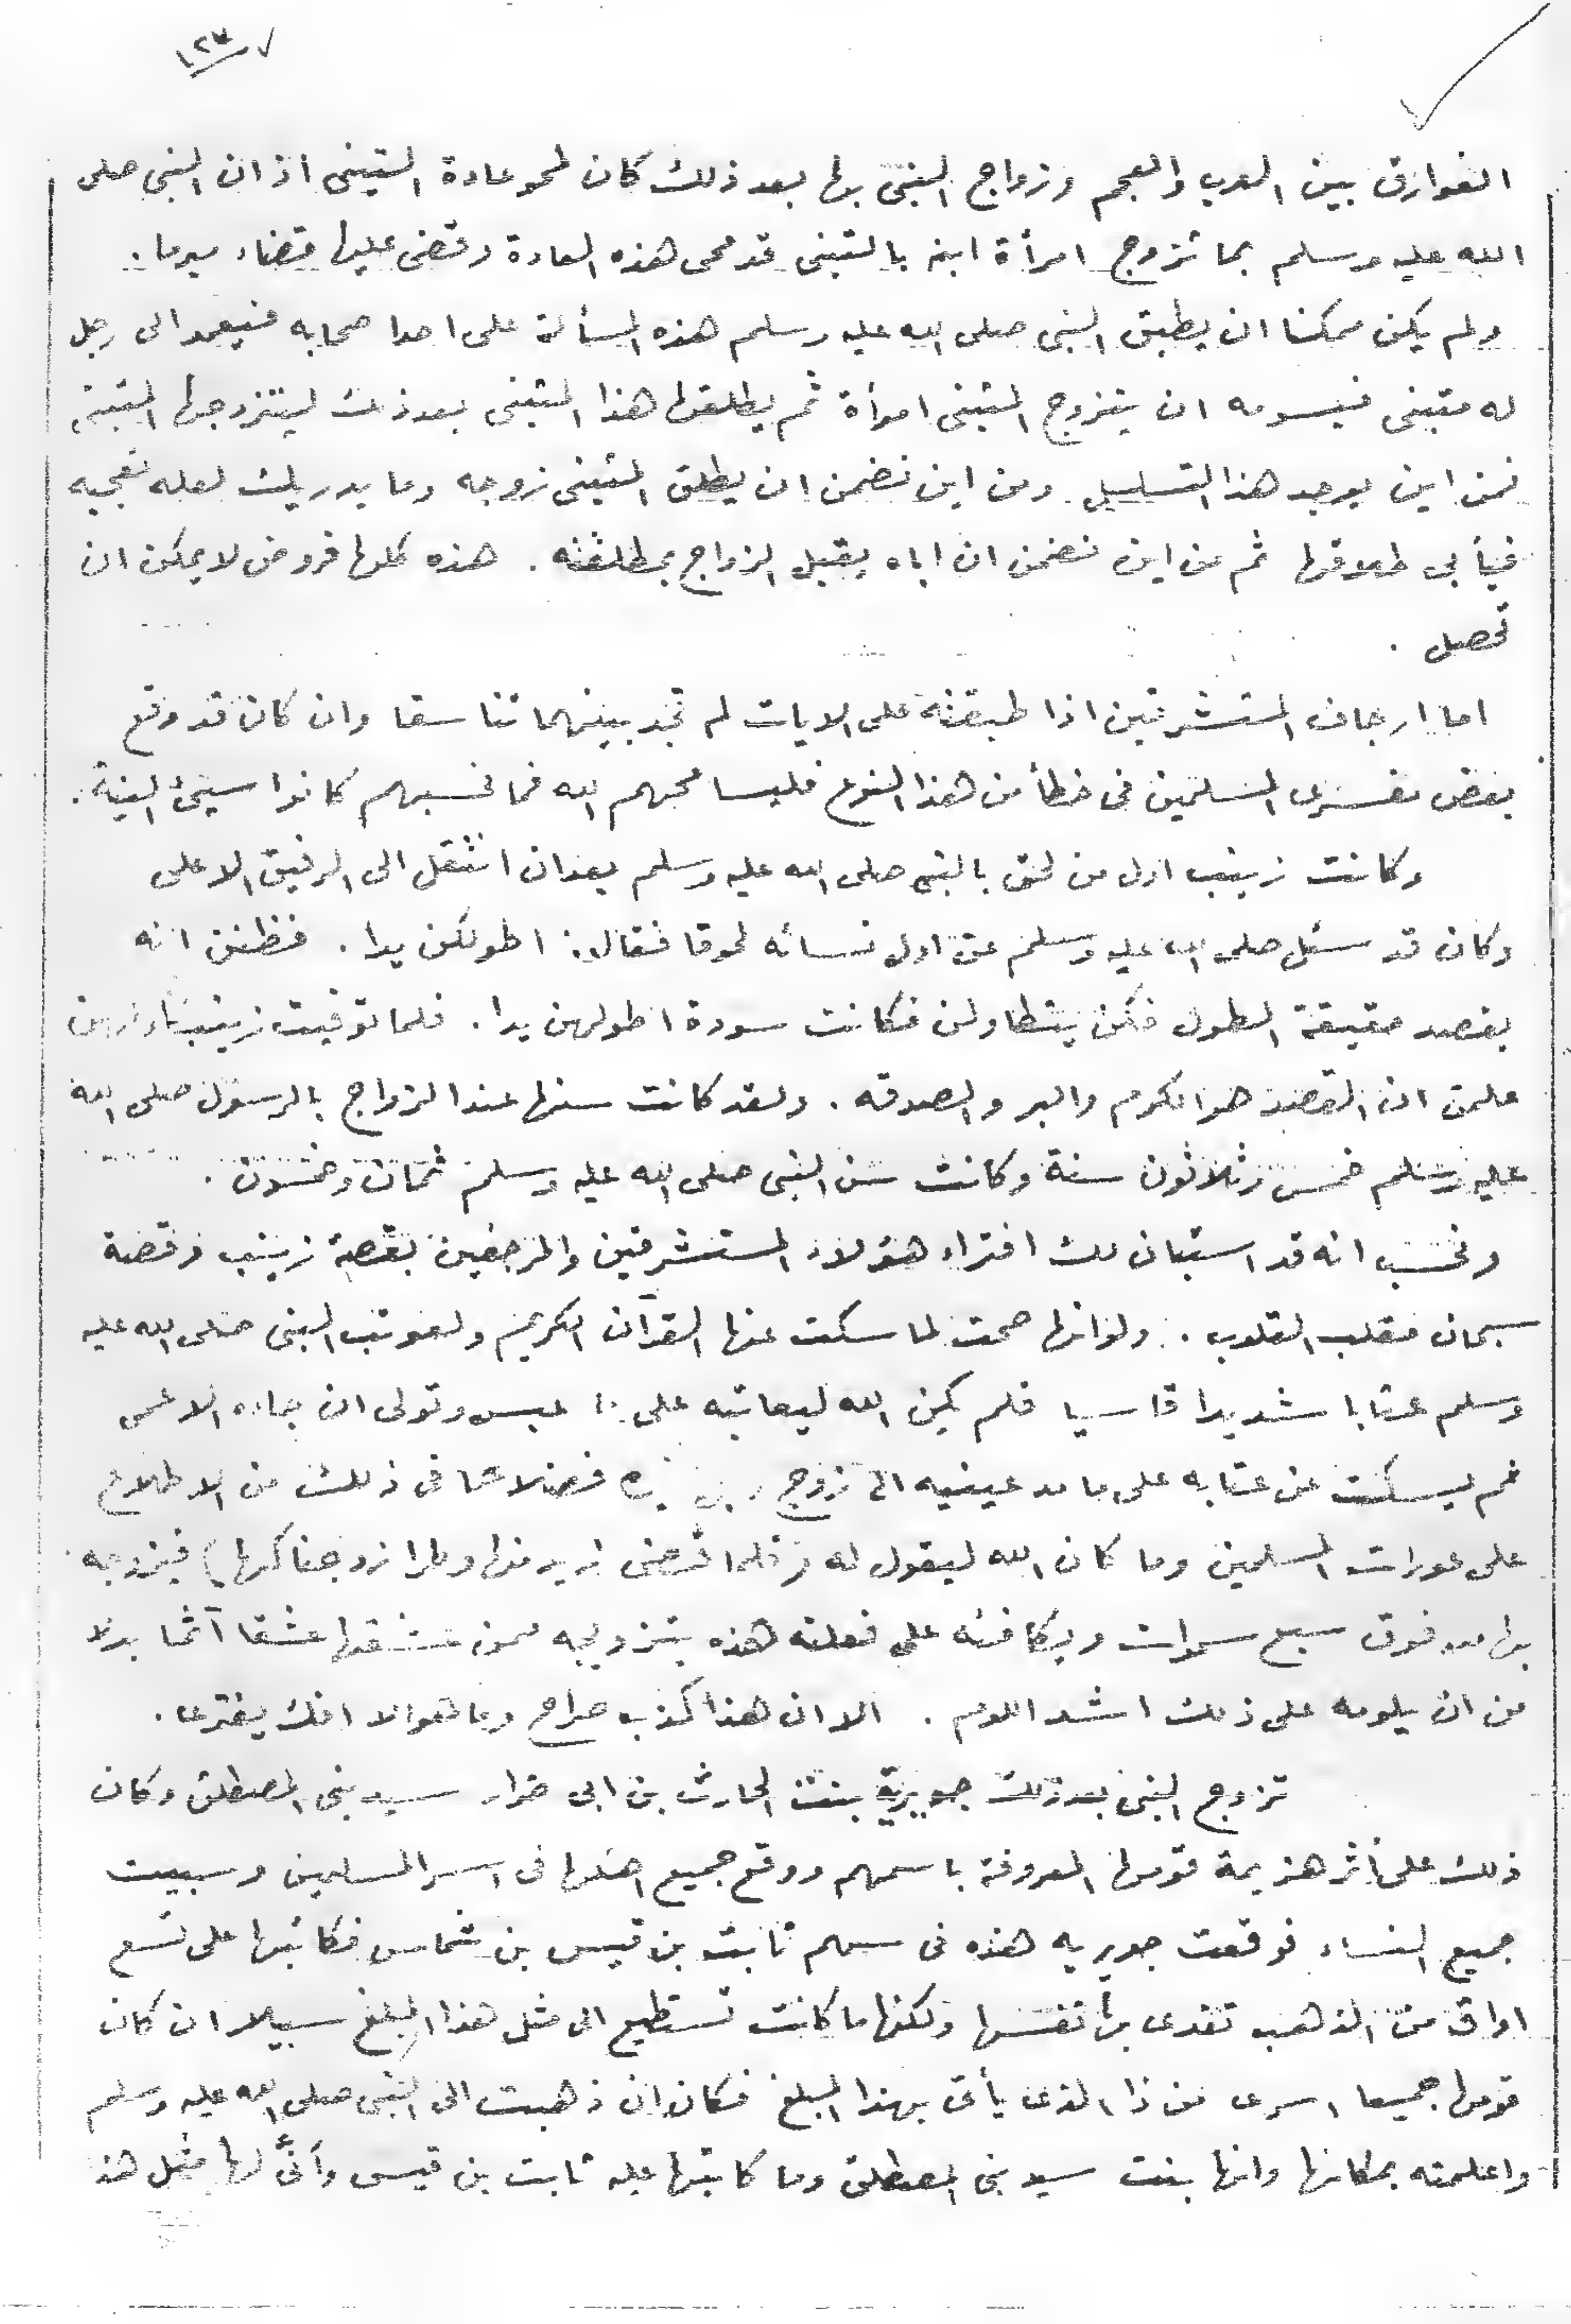 ١٢٧
الفوارق بين العرب والعجم وزواج النبى بها بعد ذلك كان لمحو عادة التبنى اذ ان النبى صلى
الله عليه وسلم بما تزوج امرأة ابنه بالتبنى قد محى هذه العادة وقضى عليها قضاء مبرما .
ولم يكن ممكنا ان يطبق النبى صلى الله عليه وسلم هذه المسألة على احد اصحابه فيعمد الى رجل
له متبنى فيسومه ان يتزوج المتبنى امرأة ثم يطلقها هذا المتبنى بعد ذلك ليتزوجها
فمن اين يوجد هذا التسلسل ومن اين نضمن ان يطلق المتبنى زوجه وما يدريك لعله تعجبه
فيأبى طلاقها ثم من اين نضمن ان اباه يقبل الزواج بمطلقته . هذه كلها فروض لا يمكن ان
تحصل .
اما ارجاف المستشرقين اذا طبقته على الايات لم تجد بينهما تناسقا وان كان قد وقع
بعض مفسرى المسلمين فى خطأ من هذا النوع فليسامحهم الله فما نحسبهم كانوا سيئ النية .
وكانت زينب اول من لحق بالنبى صلى الله عليه وسلم بعد ان انتقل الى الرفيق الاعلى
وكان قد سئل صلى الله عليه وسلم عن اول نسائه لحوقا فقال : اطولكن يدا . فظنن انه
يقصد حقيقة الطول فكن يتطاولن فكانت سودة اطولهن يدا . فلما توفيت زينب
علمن ان القصد هو الكرم والبر والصدقه . ولقد كانت سنها عند الزواج بالرسول صلى الله
عليه وسلم خمس وثلاثون سنة وكانت سن النبى صلى الله عليه وسلم ثمان وخمسون .
ونحسب انه قد استبان لك افتراء هؤلاء المستشرقين والمرجفين بقصة زينب وقصة
سبحان مقلب القلوب . ولو انها صحت لما سكت عنها القرآن الكريم ولعوتب النبى صلى الله عليه
وسلم عتابا شديدا قاسيا فلم يكن الله ليعاتبه على : عبس وتولى ان جاءه الاعمى
ثم يسكت عن عتابه على ما مد عينيه الى زوج فضلا عما فى ذلك من الاطلاع
على عورات المسلمين وما كان الله ليقول له ( فلما قضى زيد منها وطرا زوجناكها ) فيزوجه
بها من فوق سبع سموات ويكافئه على فعلته هذه بتزويجه ممن عشقها عشقا آثما بدلا
من ان يلومه على ذلك اشد اللوم . الا ان هذا كذب صراح وما هو الا افك يفترى .
تزوج النبى بعد ذلك جويرية بنت الحارث بن ابى ضرار سيد بنى المصطلق وكان
ذلك على أثر هزيمة قومها المعروفة باسمهم ووقع جميع اهلها فى اسر المسلمين وسبيت
جميع النساء فوقعت جويريه هذه فى سهم ثابت بن قيس بن شماس فكاتبها على تسع
اواق من الذهب تفدى بها نفسها ولكنها ما كانت تستطيع الى مثل هذا المبلغ سبيلا ان كان
قومها جميعا اسرى من ذا الذى يأتى بهذا المبلغ فكان ان ذهبت الى النبى صلى الله عليه وسلم
واعلمته بمكانها وانها بنت سيد بنى المصطلق وما كاتبها عليه ثابت بن قيس وأنَّى لها مثل هذ